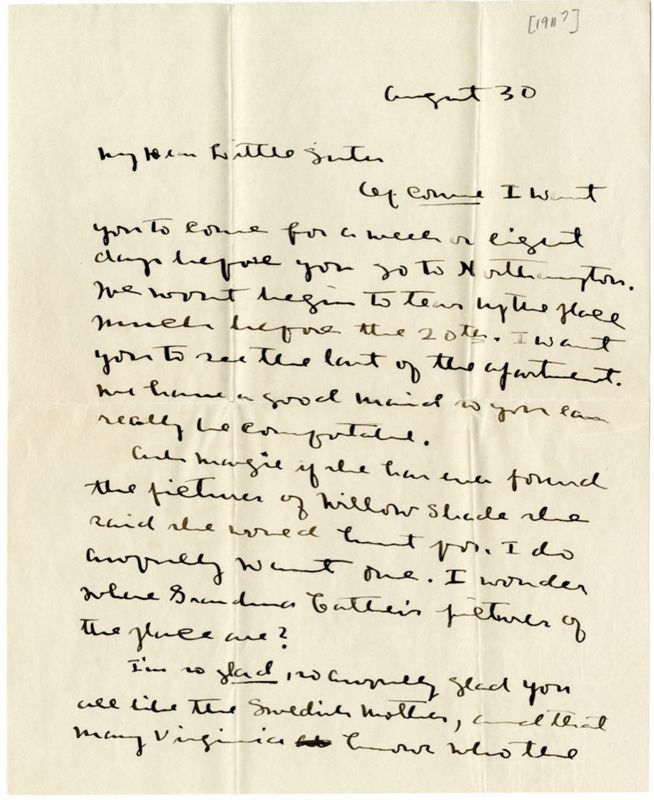 [1911?]
August 30
My Dear Little Sister
Of course I want
you to come for a week or eight
days before you go to Northampton.
We wont begin to tear up the place
much before the 20th. I want
you to see the last of the apartment.
We have a good maid so you can
really be comfortable.
Ask Margie if she has ever found
the pictures of Willow Shade she
said she would hunt for. I do
awfully want one. I wonder
where Grandma Cather's pictures of
the place are?
I'm so glad, so awfully glad you
all like the Swedish Mother, and that
Mary Virginia knows who the